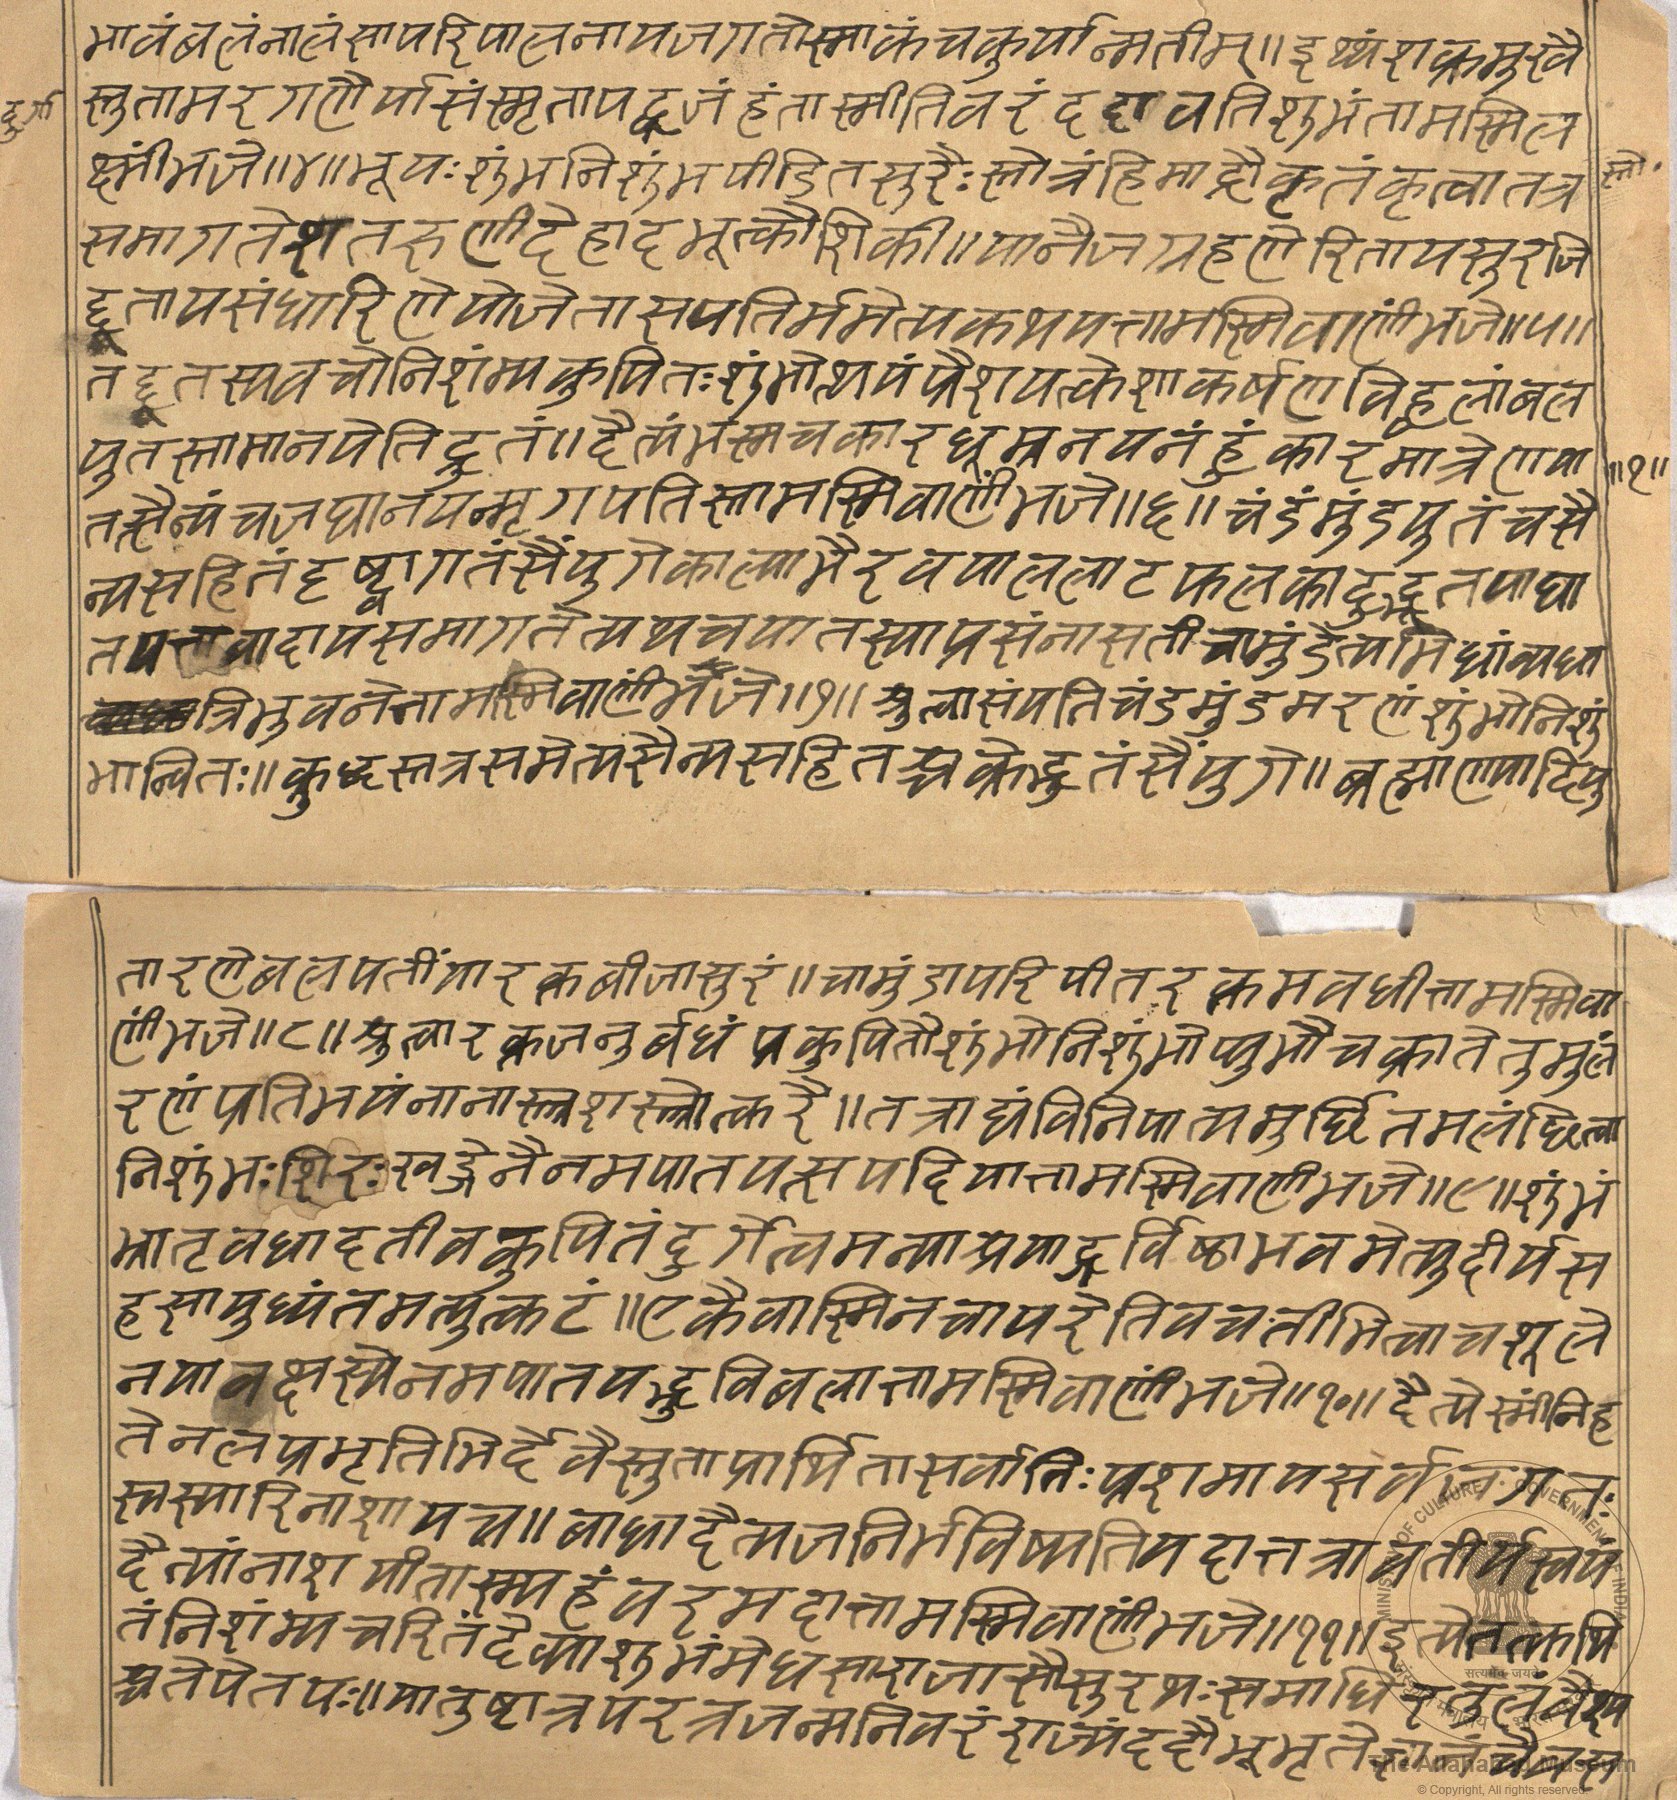 भावंबलंनालंसापरिपालनायजगतोस्माकंचकुर्यान्मतीम्॥इथ्थंशक्रमुखै
दुर्गा
स्तुतामरगणैर्यासंस्मृतापद्रुजंहंतास्मीतिवरंददावतिशुभंतामस्मिल
क्ष्मींभजे॥४॥भूयःशुंभनिशुंभपीडितसुरैःस्तोत्रंहिमाद्रौकृतंकृत्वातत्र
स्तो॰
समागतेशतरुणीदेहादभूत्कौशिकी॥यानैजग्रहणेरितायसुरजि
द्दूतायसंधारिणेयोजेतासपतिर्ममेत्यकथयत्तामस्मिवाणींभजे॥५॥
तद्दूतस्यवचोनिशंम्यकुपितःशुंभोत्थयंप्रैशयत्केशाकर्षणविह्वलांबल
युतस्तामानयेतिद्रुतं॥दैत्यंभस्मचकारधूम्रनयनंहुंकारमात्रेणया
॥१॥
तत्सैन्यंचजघानयन्मृगपतिस्तामस्मिवाणींभजे॥६॥चंडंमुंडयुतंचसै
न्यसहितंदृष्ट्वागतंसैंयुगेकाल्याभैरवयाललाटफलकादुद्भूतयाघा
तयत्तावादायसमागतेत्यथचयातस्याप्रसंनासतीचामुंडेत्यभिधांव्यधा
त्रिभुवनेत्तामस्मिवाणींभजे॥७॥श्रुत्वासंयतिचंडमुंडमरणंशुंभोनिशुं
भान्वितः॥क्रुद्धस्तत्रसमेत्यसैन्यसहितश्चक्रेद्भुतंसैंयुगे॥ब्रह्माण्यादियु
तारणेबलपतींयारक्तबीजासुरं॥चामुंडापरिपीतरक्तमवधीत्तामस्मिवा
णींभजे॥८॥श्रुत्वारक्तजनुर्बधंप्रकुपितौशुंभोनिशुंभोप्युभौचक्रातेतुमुलं
रणंप्रतिभयंनानास्त्रशस्त्रोत्करै॥तत्राद्यंविनिपात्यमुर्छितमलंछित्वा
निशुंभःशिरःखड्गेनैनमपातयत्सपदियात्तामस्मिवाणींभजे॥९॥शुंभं
भ्रातृवधादतीवकुपितंदुर्गेत्वमन्याश्रयाद्गर्विष्ठाभवमेत्युदीर्यस
हसायुध्यंतमत्युत्कटं॥एकैवास्मिनचापरेतिवचतीभित्वाचशूले
नयावक्षस्येनमपातयद्भुविबलात्तामस्मिवाणींभजे॥१०॥दैत्येस्मींनिह
तेनलप्रभृतिभिर्देवैस्तुताप्रार्थितासर्वार्तिःप्रशमायसर्वजग्रतः
स्त्वस्यारिनाशायच॥बाधादैत्यजनिर्भविष्यतियदात्तत्रावतीर्यस्वयं
दैत्यांनाशयीतास्म्यहंवरमदात्तामस्मिवाणींभजे॥११॥इत्येतत्कथि
तंनिशंम्यचरितंदेव्याशुभंमेधसाराजासौसुरथःसमाधिरतुलंवैश्य
श्चतेपेतपः॥यातुष्टात्रपरत्रजन्मनिवरंराज्यंददौभूभृतेज्ञानंचैवस
MINISTRY OF CULTURE · GOVERNMENT OF INDIA
सत्यमेव जयते
The Allahabad Museum
© Copyright, All rights reserved.